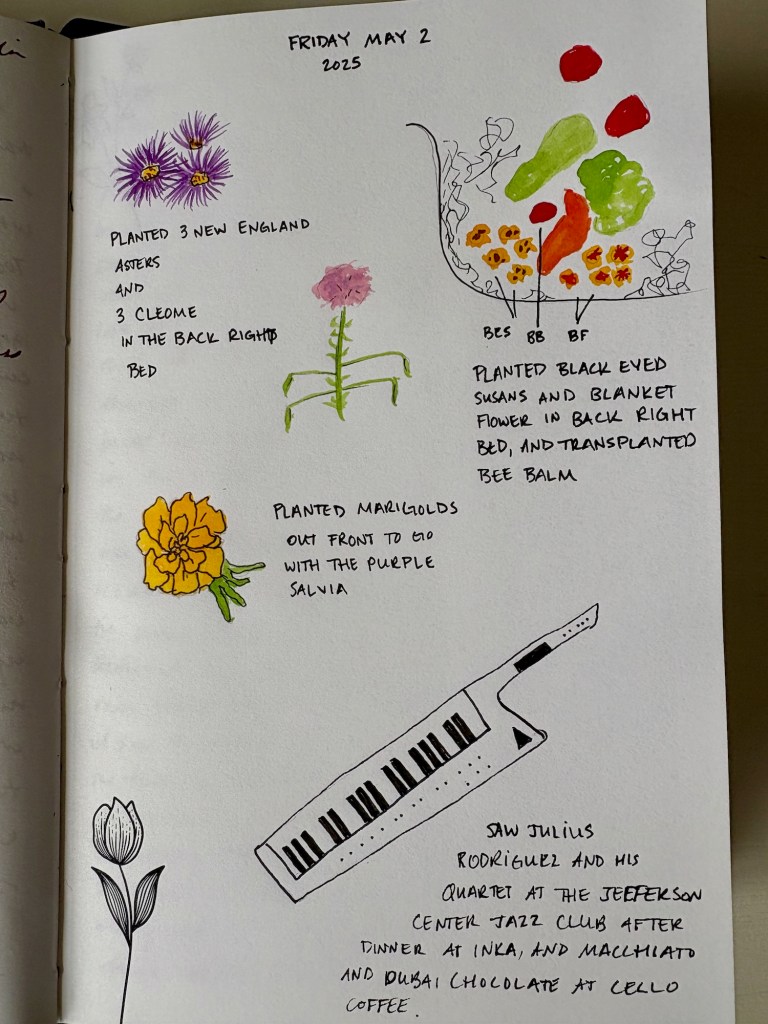 FRIDAY MAY 2
2025
PLANTED 3 NEW ENGLAND
ASTERS
AND
3 CLEOME
IN THE BACK RIGHT
BED
BES BB BF
PLANTED BLACK EYED
SUSANS AND BLANKET
FLOWER IN BACK RIGHT
BED, AND TRANSPLANTED
BEE BALM
PLANTED MARIGOLDS
OUT FRONT TO GO
WITH THE PURPLE
SALVIA
SAW JULIUS
RODRIGUEZ AND HIS
QUARTET AT THE JEFFERSON
CENTER JAZZ CLUB AFTER
DINNER AT INKA, AND MACCHIATO
AND DUBAI CHOCOLATE AT CELLO
COFFEE.